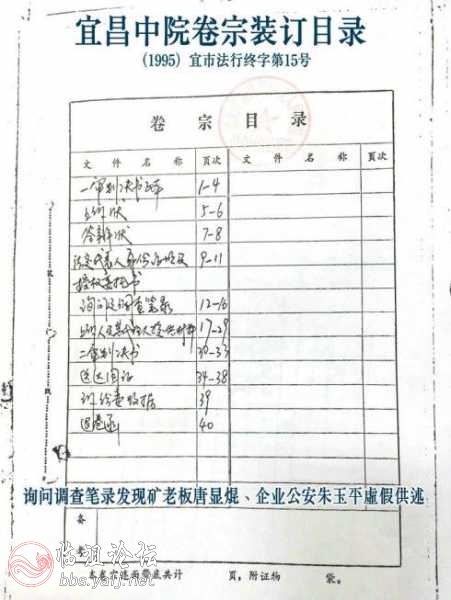 宜昌中院卷宗装订目录
(1995) 宜市法行终字第15号
卷宗目录
文件名称 页次 文件名称 页次
一审判决书正本 1-4
上诉状 5-6
答辩状 7-8
法定代表人身份证明及 9-11
授权委托书
询问及调查笔录 12-16
上诉人及其代理人提供材料 17-29
二审判决书 30-33
送达回证 34-38
诉讼费收据 39
退卷函 40
询问调查笔录发现矿老板唐显焜、企业公安朱玉平虚假供述
备
考
本卷宗连面带底共计 页,附证物 袋。
临沮论坛
bbs.yaiyt.net